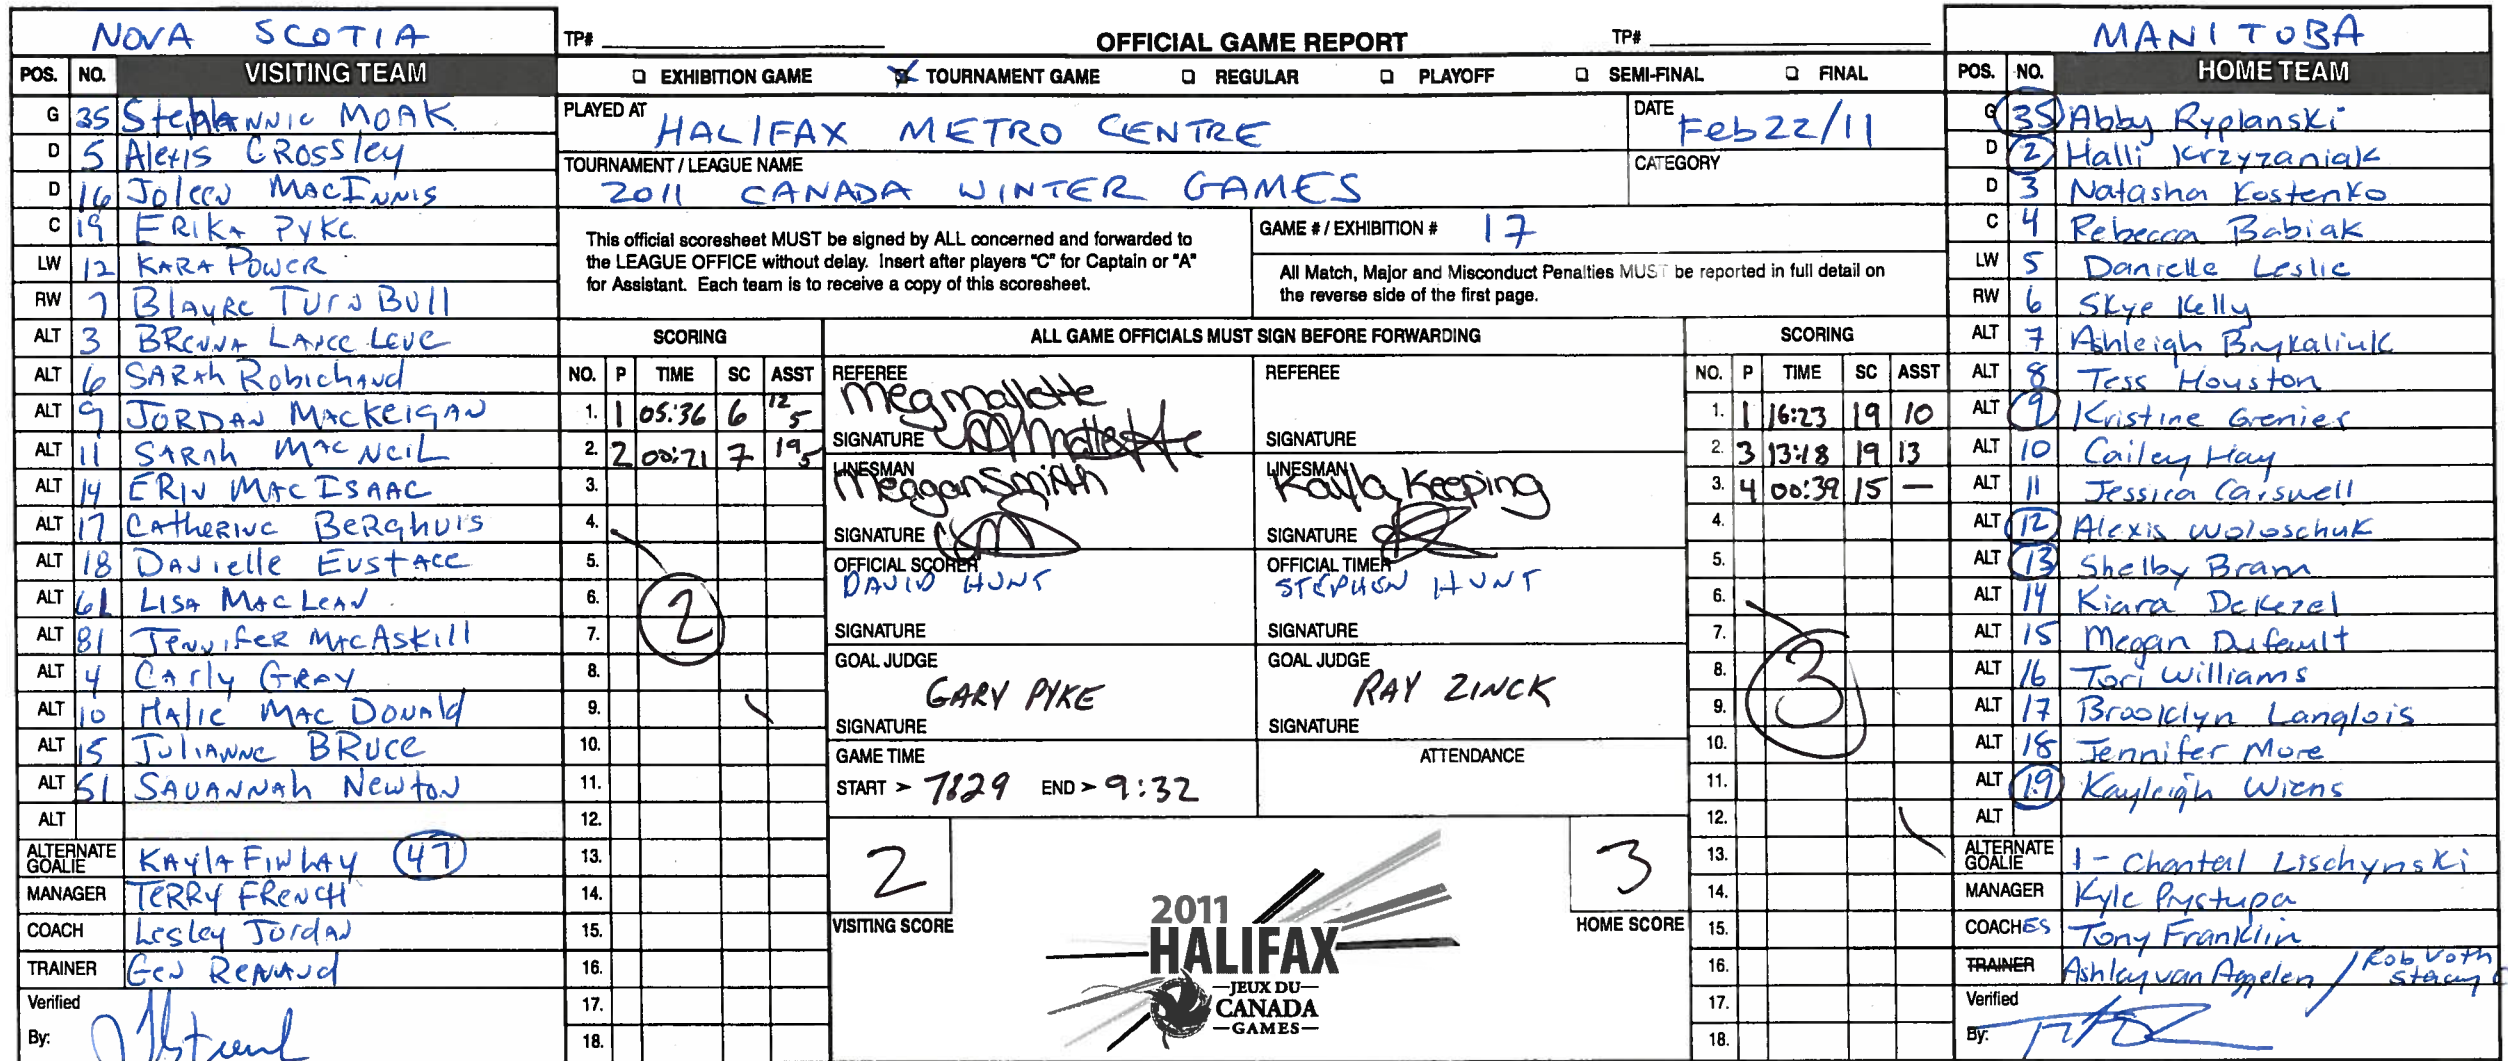 NOVA SCOTIA
POS. NO. VISITING TEAM
G 35 Stephannie MOAK
D 5 Alexis CROSSley
D 16 Joleen MacInnis
C 19 ERIKA PYKE
LW 12 KARA POWER
RW 7 Blayre TurnBull
ALT 3 BRENNA Lance Leve
ALT 6 SARAh Robichaud
ALT 9 JORDAN MacKeigan
ALT 11 SARAh MacNeil
ALT 14 ERIN MacISAAC
ALT 17 Catherine Berghuis
ALT 18 Danielle Eustace
ALT 61 LISA MacLean
ALT 81 Jennifer MacAskill
ALT 4 Carly Gray
ALT 10 Halie MacDonald
ALT 15 Julianne BRuce
ALT 51 SAVANNAh Newton
ALT
ALTERNATE GOALIE KAYlA FINLAY 47
MANAGER TERRY FRENCH
COACH Lesley Jordan
TRAINER Gen Renaud
Verified
By:
TP#
OFFICIAL GAME REPORT
TP#
EXHIBITION GAME TOURNAMENT GAME REGULAR PLAYOFF SEMI-FINAL FINAL
PLAYED AT HALIFAX METRO CENTRE
DATE Feb 22/11
TOURNAMENT / LEAGUE NAME 2011 CANADA WINTER GAMES
CATEGORY
This official scoresheet MUST be signed by ALL concerned and forwarded to
the LEAGUE OFFICE without delay. Insert after players "C" for Captain or "A"
for Assistant. Each team is to receive a copy of this scoresheet.
GAME # / EXHIBITION # 17
All Match, Major and Misconduct Penalties MUST be reported in full detail on
the reverse side of the first page.
SCORING
NO. P TIME SC ASST
1. 1 05:36 6 12 5
2. 2 00:21 7 19 5
3.
4.
5.
6.
7.
8.
9.
10.
11.
12.
13.
14.
15.
16.
17.
18.
2
ALL GAME OFFICIALS MUST SIGN BEFORE FORWARDING
REFEREE Meg Mallette
SIGNATURE
REFEREE
SIGNATURE
LINESMAN Meagan Smith
SIGNATURE
LINESMAN Kayla Keeping
SIGNATURE
OFFICIAL SCORER DAVID HUNT
SIGNATURE
OFFICIAL TIMER STEPHEN HUNT
SIGNATURE
GOAL JUDGE GARY PYKE
SIGNATURE
GOAL JUDGE RAY ZINCK
SIGNATURE
GAME TIME
START > 7:29 END > 9:32
ATTENDANCE
2
VISITING SCORE
3
HOME SCORE
2011
HALIFAX
JEUX DU
CANADA
GAMES
SCORING
NO. P TIME SC ASST
1. 1 16:23 19 10
2. 3 13:18 19 13
3. 4 00:39 15 —
4.
5.
6.
7.
8.
9.
10.
11.
12.
13.
14.
15.
16.
17.
18.
3
MANITOBA
POS. NO. HOME TEAM
G 35 Abby Ryplanski
D 2 Halli Krzyzaniak
D 3 Natasha Kostenko
C 4 Rebecca Babiak
LW 5 Danielle Leslie
RW 6 Skye Kelly
ALT 7 Ashleigh Brykaliuk
ALT 8 Tess Houston
ALT 9 Kristine Grenier
ALT 10 Cailey Hay
ALT 11 Jessica Carswell
ALT 12 Alexis Woloschuk
ALT 13 Shelby Bram
ALT 14 Kiara DeKezel
ALT 15 Megan Dufault
ALT 16 Tori Williams
ALT 17 Brooklyn Langlois
ALT 18 Jennifer More
ALT 19 Kayleigh Wiens
ALT
ALTERNATE GOALIE 1 - Chantal Lischynski
MANAGER Kyle Prystupa
COACHES Tony Franklin
TRAINER Ashley van Aggelen / Rob Voth
Stacey
Verified
By: